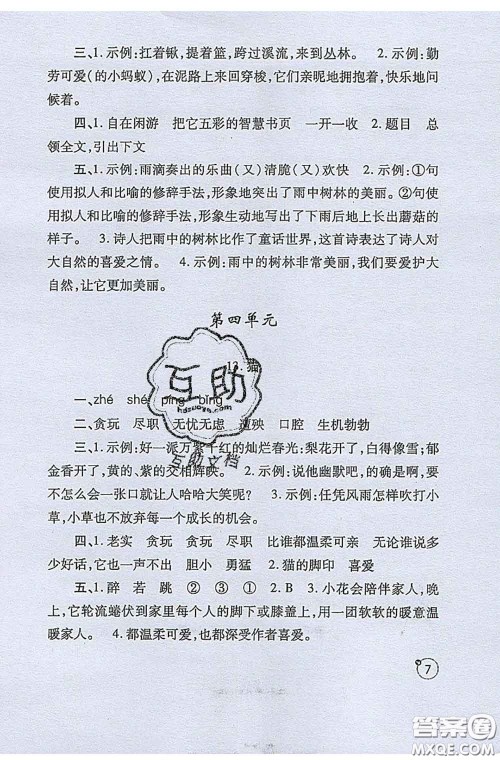 三、1. 示例：扛着锹，提着篮，跨过溪流，来到丛林。 2. 示例：勤
劳可爱（的小蚂蚁），在泥路上来回穿梭，它们亲昵地拥抱着，快乐地问
候着。
四、1. 自在闲游 把它五彩的智慧书页 一开一收 2. 题目 总
领全文，引出下文
五、1. 示例：雨滴奏出的乐曲（又）清脆（又）欢快 2. 示例：①句
使用拟人和比喻的修辞手法，形象地突出了雨中树林的美丽。②句使
用拟人和比喻的修辞手法，形象生动地写出了雨后地上长出蘑菇的
样子。 3. 诗人把雨中的树林比作了童话世界，这首诗表达了诗人对
大自然的喜爱之情。 4. 示例：雨中的树林非常美丽，我们要爱护大
自然，让它更加美丽。
第四单元
13. 猫
一、zhé shé píng bǐng
二、贪玩 尽职 无忧无虑 遭殃 口腔 生机勃勃
三、1. 示例：好一派万紫千红的灿烂春光：梨花开了，白得像雪；郁
金香开了，黄的、紫的交相辉映。 2. 示例：说他幽默吧，的确啊，要
不怎么会一张口就让人哈哈大笑呢？ 3. 示例：任凭风雨怎样吹打小
草，小草也不放弃每一个成长的机会。
四、1. 老实 贪玩 尽职 比谁都温柔可亲 无论谁说多少
好话，它也一声不出 胆小 勇猛 2. 猫的脚印 喜爱
五、1. 醉 若 跳 ② ③ ① 2. B 3. 小花会陪伴家人，晚
上，它轮流蜷伏到家里每个人的脚下或膝盖上，用一团软软的暖意温
暖家人。 4. 都温柔可爱，也都深受作者喜爱。
互助
hdzuoye.com
互助文档
7
答案圈
MXQE.COM